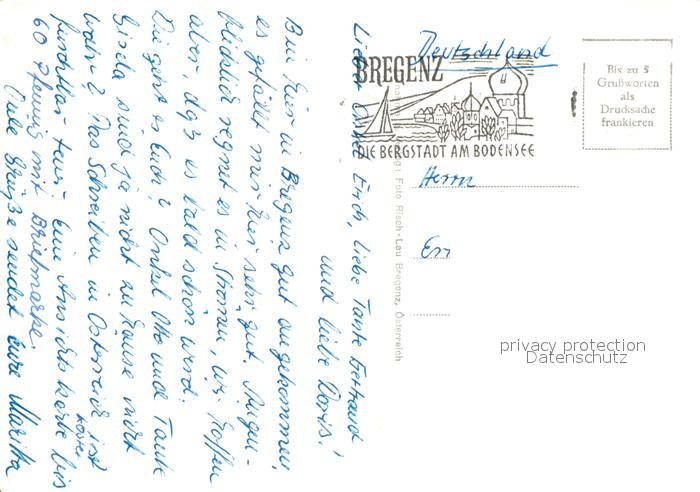 Lieber Onkel Erich, liebe Tante Gertraud,
und liebe Doris.
Bin hier in Bregenz gut angekommen,
es gefällt mir hier sehr gut. Augen-
blicklich regnet es in Strömen, wir hoffen
aber, daß es bald schön wird.
Wie geht es Euch? Onkel Otto und Tante
Gisela sind ja nicht zu Hause nicht
wahr? Das Schreiben in Österreich ist
furchtbar teuer. Eine Ansichtskarte kostet bis
60 Pfennig mit Briefmarke.
Viele Grüße sendet Eure Marita
Deutschland
BREGENZ
DIE BERGSTADT AM BODENSEE
Bis zu 5
Grußworten
als
Drucksache
frankieren
Herrn
Foto Risch-Lau Bregenz, Österreich
privacy protection
Datenschutz